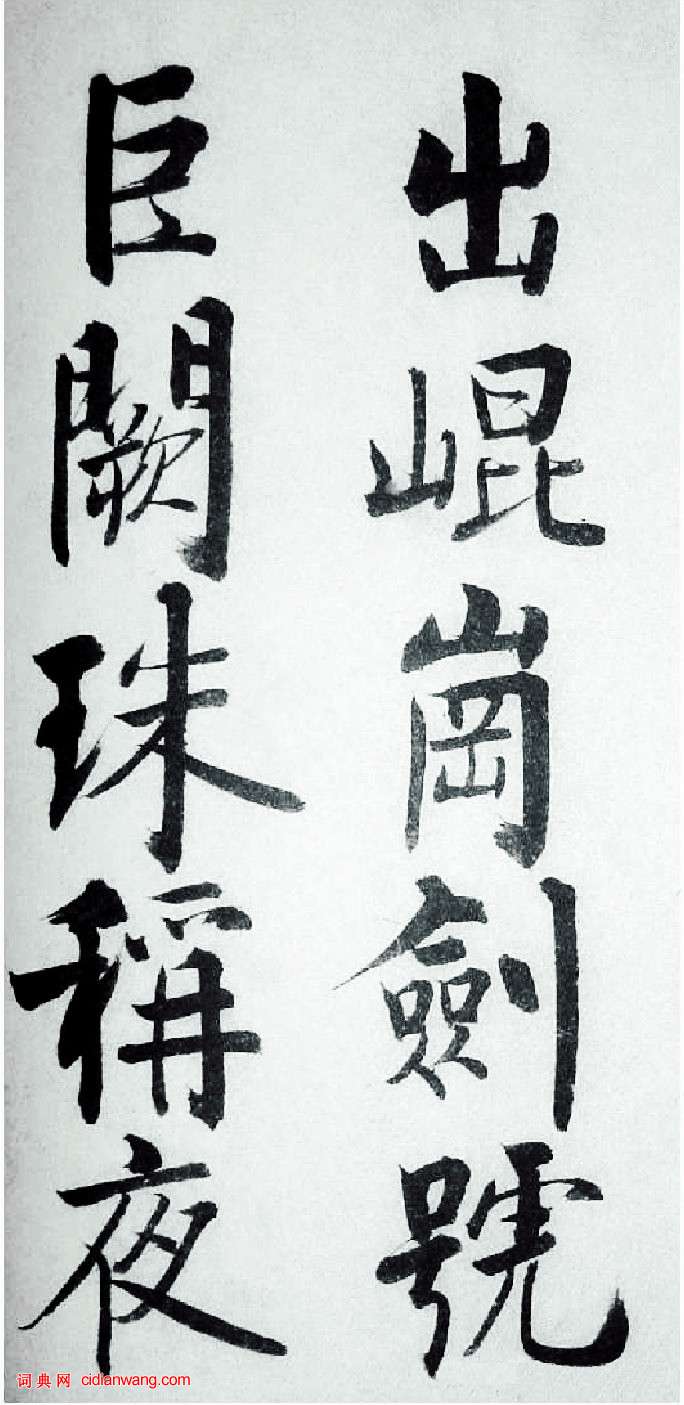 出崐崗劍號
臣闕珠稱夜
词典网 cidianwang.com